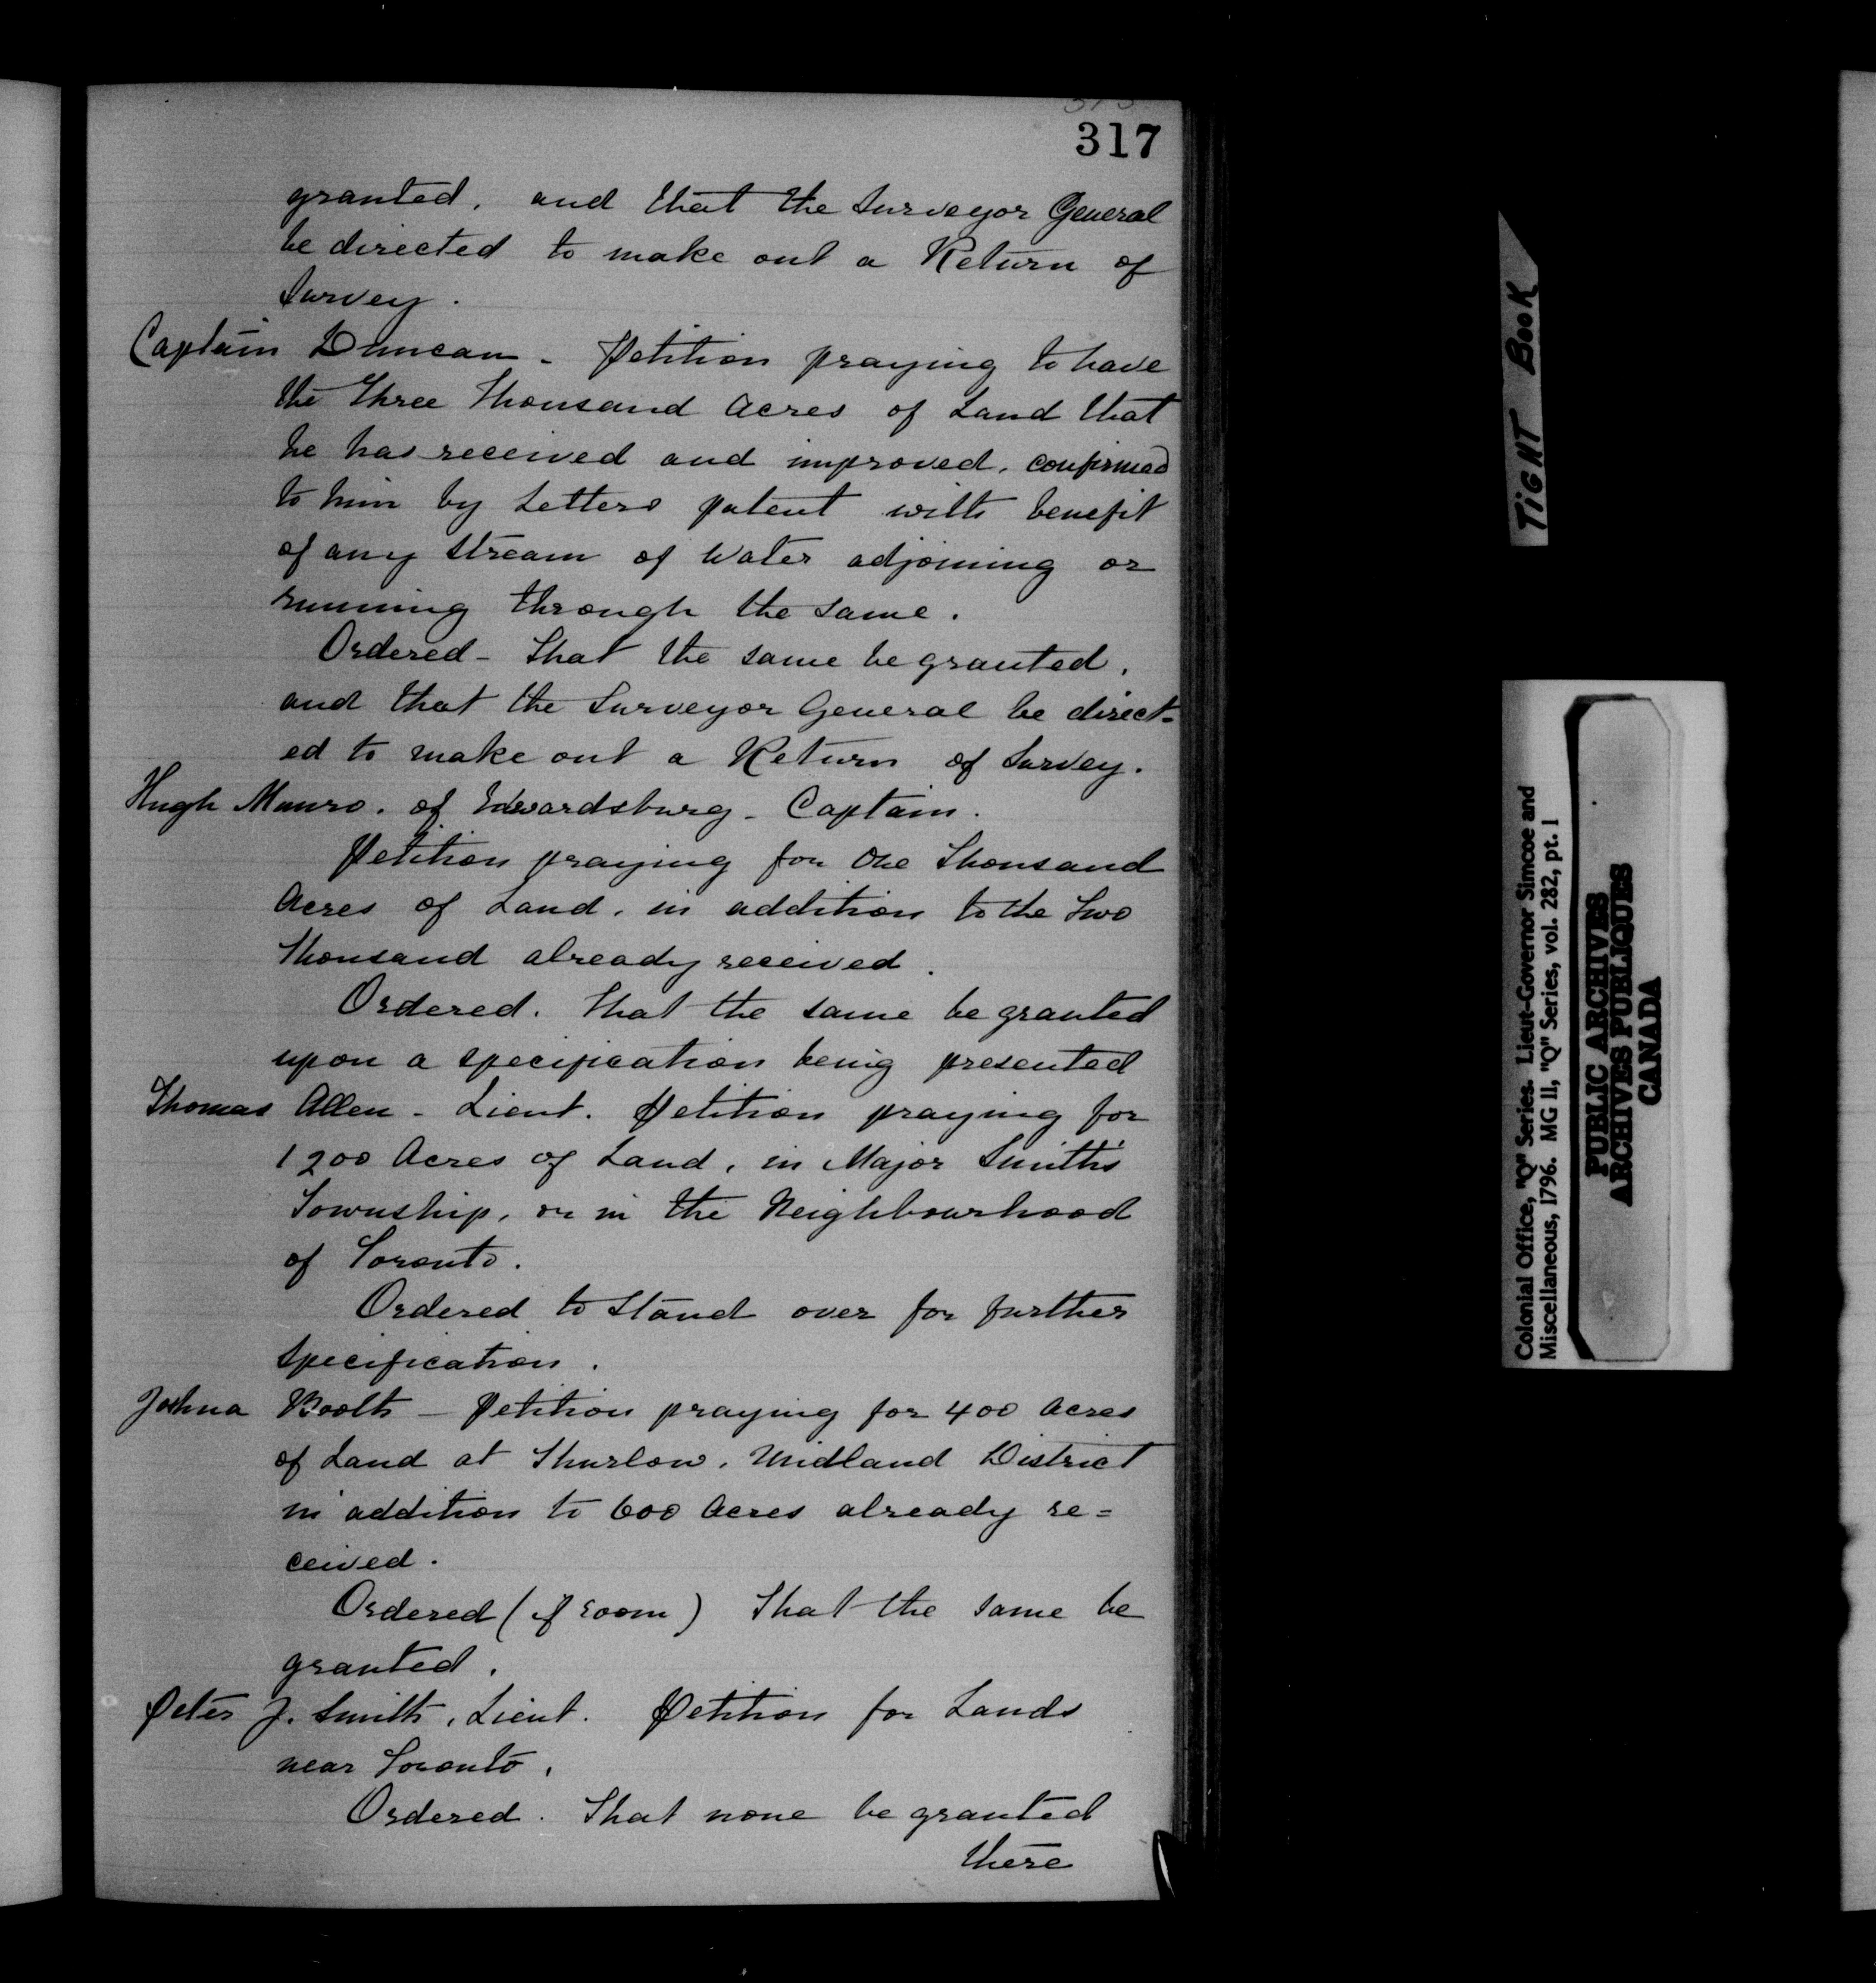 317
granted, and that the Surveyor General
be directed to make out a Return of
Survey.
Captain Duncan - Petition praying to have
the Three Thousand Acres of Land that
he has received and improved, confirmed
to him by Letters patent with benefit
of any Stream of Water adjoining or
running through the same.
Ordered - That the same be granted,
and that the Surveyor General be direct-
ed to make out a Return of Survey.
Hugh Munro. of Edwardsburg - Captain.
Petition praying for One Thousand
Acres of Land, in addition to the Two
Thousand already received.
Ordered. That the same be granted
upon a specification being presented
Thomas Allen - Lieut. Petition praying for
1200 Acres of Land, in Major Smith's
Township, or in the Neighbourhood
of Toronto.
Ordered to Stand over for further
Specification.
Joshua Booth - Petition praying for 400 Acres
of Land at Thurlow, Midland District
in addition to 600 Acres already re=
ceived.
Ordered (if room) That the same be
granted.
Peter J. Smith, Lieut. Petition for Lands
near Toronto.
Ordered. That none be granted
there
TiGHT BOOK
Colonial Office, "Q" Series. Lieut-Governor Simcoe and
Miscellaneous, 1796. MG 11, "Q" Series, vol. 282, pt. 1
PUBLIC ARCHIVES
ARCHIVES PUBLIQUES
CANADA